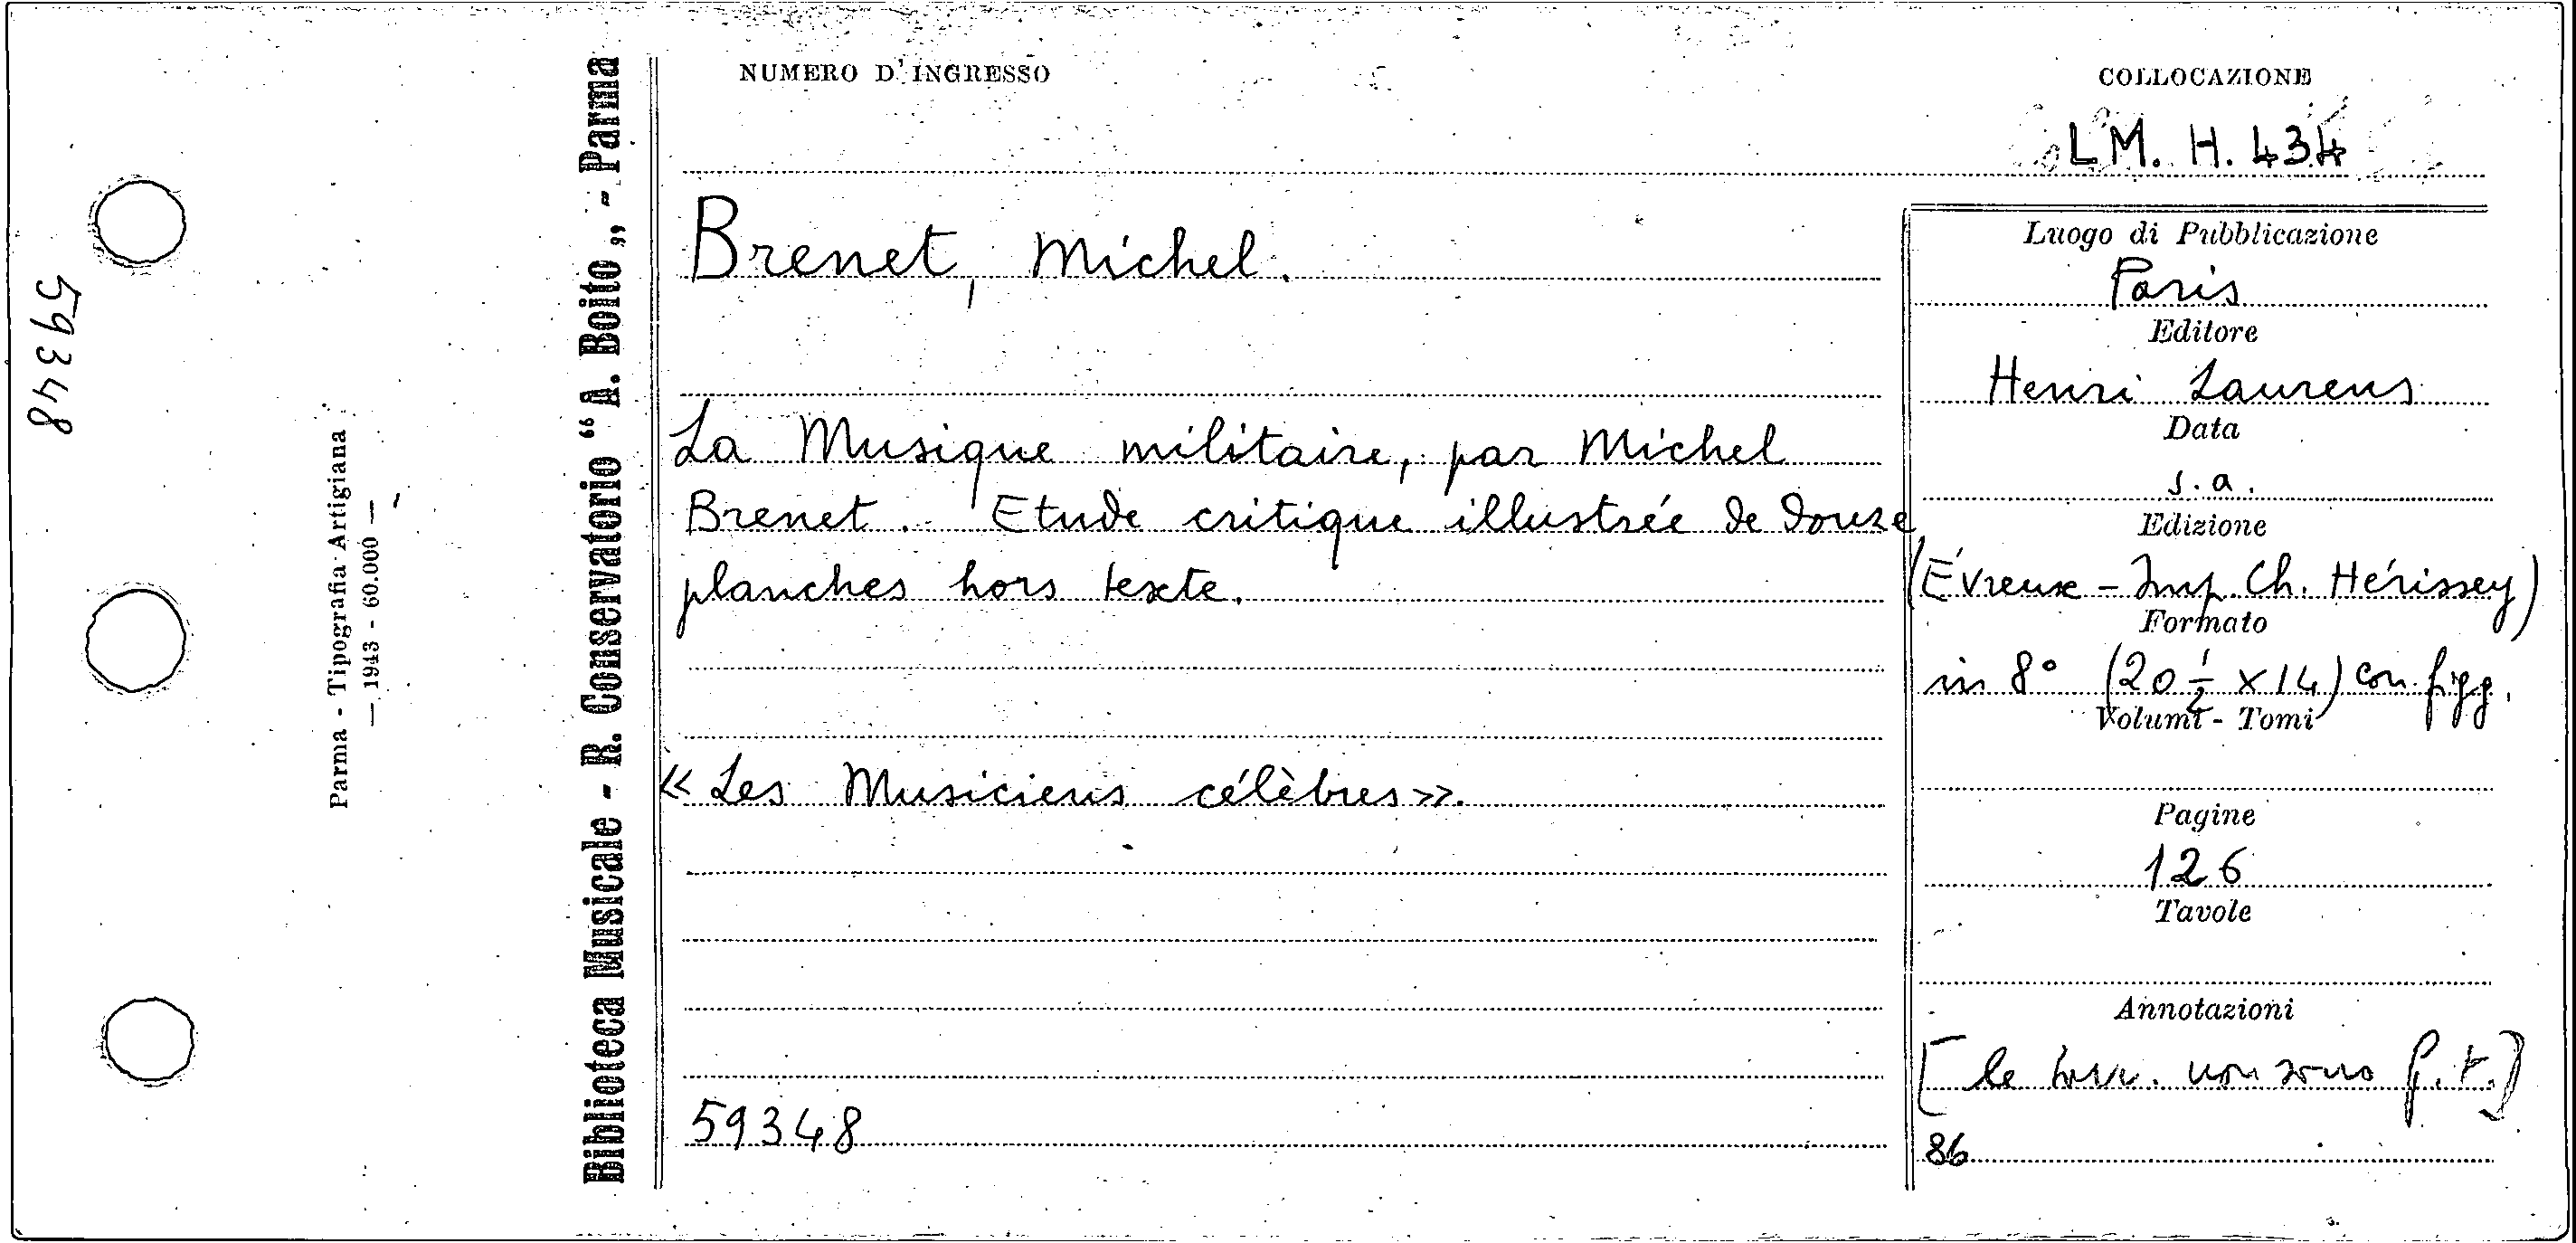 59348
Parna - Tipografia Artigiana
— 1943 - 60.000 —
Biblioteca Musicale - R. Conservatorio “A. Boito„ - Parma
NUMERO D'INGRESSO
COLLOCAZIONE
LM. H. 434
Brenet, Michel.
La Musique militaire, par Michel
Brenet. Etude critique illustrée de douze
planches hors texte.
« Les Musiciens célèbres ».
59348
Luogo di Pubblicazione
Paris
Editore
Henri Laurens
Data
s.a.
Edizione
(Évreux - Imp. Ch. Hérissey)
Formato
in 8° (20 1/2 x 14) con figg.
Volumi - Tomi
Pagine
126
Tavole
Annotazioni
[le non sono f.t.]
86